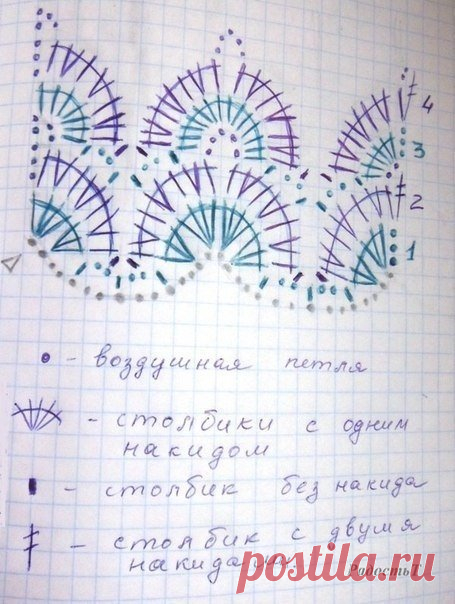 4
3
2
1
• - воздушная петля
- столбики с одним
накидом
- столбик без накида
- столбик с двумя
накидами
РадостьТ
postila.ru